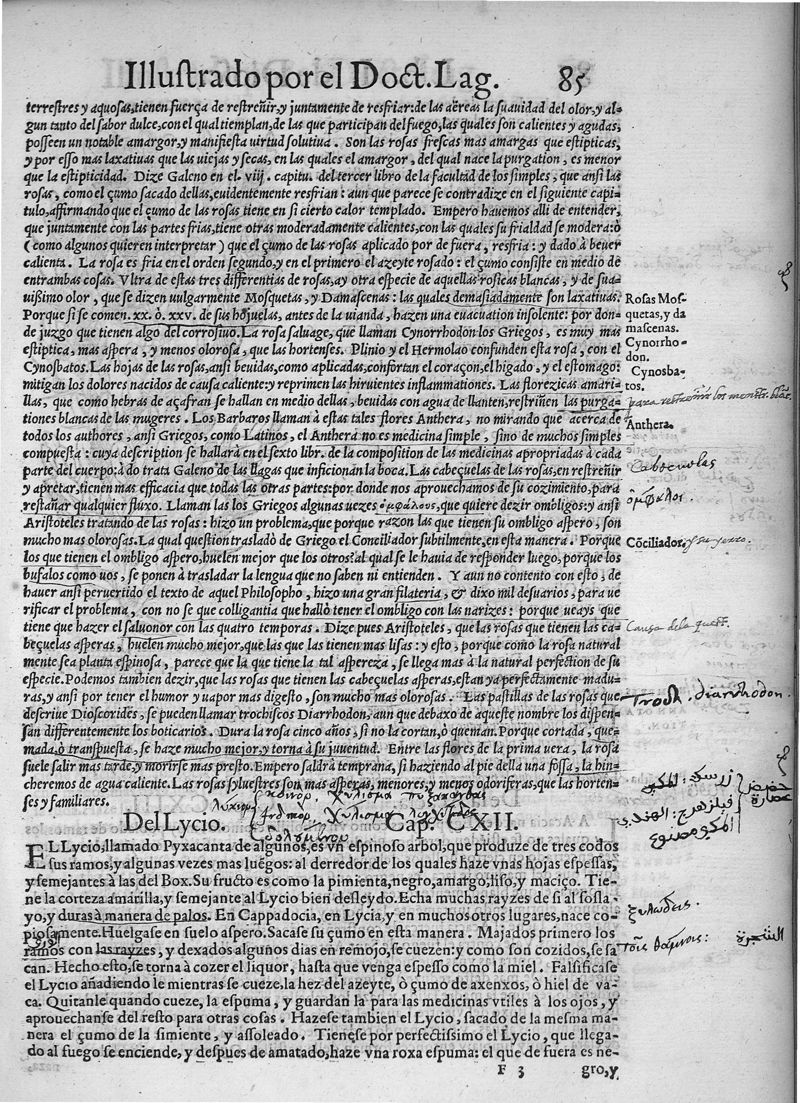 Illustrado por el Doct. Lag. 85
terrestres y aquosas, tienen fuerça de restreñir, y juntamente de resfriar: de las aëreas la suauidad del olor, y al-
gun tanto del sabor dulce, con el qual tiemplan, de las que participan del fuego, las quales son calientes y agudas,
posseen un notable amargor, y manifiesta uirtud solutiua. Son las rosas frescas mas amargas que estipticas,
y por esso mas laxatiuas que las uiejas y secas, en las quales el amargor, del qual nace la purgation, es menor
que la estipticidad. Dize Galeno en el. viij. capitu. del tercer libro de la facultad de los simples, que ansi las
rosas, como el çumo sacado dellas, euidentemente resfrian: aun que parece se contradize en el siguiente capi-
tulo, affirmando que el çumo de las rosas tiene en si cierto calor templado. Empero hauemos alli de entender,
que juntamente con las partes frias, tiene otras moderadamente calientes, con las quales su frialdad se modera: ò
(como algunos quieren interpretar) que el çumo de las rosas aplicado por de fuera, resfria: y dado à beuer
calienta. La rosa es fria en el orden segundo, y en el primero el azeyte rosado: el çumo consiste en medio de
entrambas cosas. Vltra de estas tres differentias de rosas, ay otra especie de aquellas rosicas blancas, y de sua-
uißimo olor, que se dizen uulgarmente Mosquetas, y Damascenas: las quales demasiadamente son laxatiuas.
Porque si se comen. xx. ò. xxv. de sus hojuelas, antes de la uianda, hazen una euacuation insolente: por don-
de juzgo que tienen algo del corrosiuo. La rosa saluage, que llaman Cynorrhodon los Griegos, es muy mas
estiptica, mas aspera, y menos olorosa, que las hortenses. Plinio y el Hermolao confunden esta rosa, con el
Cynosbatos. Las hojas de las rosas, ansi beuidas, como aplicadas, confortan el coraçon, el higado, y el estomago:
mitigan los dolores nacidos de causa caliente: y reprimen las hiruientes inflammationes. Las florezicas amari-
llas, que como hebras de açafran se hallan en medio dellas, beuidas con agua de llanten, restriñen las purga-
tiones blancas de la mugeres. Los Barbaros llaman à estas tales flores Anthera, no mirando que acerca de
todos los authores, ansi Griegos, como Latinos, el Anthera no es medicina simple, sino de muchos simples
compuesta: cuya description se hallará en el sexto libr. de la composition de las medicinas apropriadas à cada
parte del cuerpo: à do trata Galeno de las llagas que inficionan la boca. Las cabeçuelas de las rosas, en restreñir
y apretar, tienen mas efficacia que todas las otras partes: por donde nos aprouechamos de su cozimiento, para
restañar qualquier fluxo. Llaman las los Griegos algunas uezes ὀμφάλους, que quiere dezir ombligos: y ansi
Aristoteles tratando de las rosas: hizo un problema, que porque razon las que tienen su ombligo aspero, son
mucho mas olorosas. La qual question trasladò de Griego el Conciliador subtilmente, en esta manera. Porque
los que tienen el ombligo aspero, huelen mejor que los otros? al qual se le hauia de responder luego, porque los
bufalos como uos, se ponen à trasladar la lengua que no saben ni entienden. Y aun no contento con esto, de
hauer ansi peruertido el texto de aquel Philosopho, hizo una gran filateria, & dixo mil desuarios, para ue
rificar el problema, con no se que colligantia que hallò tener el ombligo con las narizes: porque ueays que
tiene que hazer el saluonor con las quatro temporas. Dize pues Aristoteles, que las rosas que tienen las ca-
beçuelas asperas, huelen mucho mejor, que las que las tienen mas lisas: y esto, porque como la rosa natural
mente sea planta espinosa, parece que la que tiene la tal aspereza, se llega mas à la natural perfection de su
especie. Podemos tambien dezir, que las rosas que tienen las cabeçuelas asperas, estan ya perfectamente madu-
ras, y ansi por tener el humor y uapor mas digesto, son mucho mas olorosas. Las pastillas de las rosas que
descriue Dioscorides, se pueden llamar trochiscos Diarrhodon, aun que debaxo de aqueste nombre los dispen-
san differentemente los boticarios. Dura la rosa cinco años, si no la cortan, ò queman. Porque cortada, que-
mada, ò transpuesta, se haze mucho mejor, y torna à su juuentud. Entre las flores de la prima uera, la rosa
suele salir mas tarde, y morirse mas presto. Empero saldrá temprana, si haziendo al pie della una fossa, la hin-
cheremos de agua caliente. Las rosas syluestres son mas asperas, menores, y menos odoriferas, que las horten-
ses y familiares.
Rosas Mos
quetas, y da
mascenas.
Cynorrho-
don.
Cynosba-
tos.
Anthera.
Cabeçuelas
ὀμφαλοι.
Cõciliador y su yerro.
Causa dela quest.
Trosk. diarrhodon.
Del Lycio. Cap. CXII.
EL Lycio, llamado Pyxacanta de algunos, es vn espinoso arbol, que produze de tres codos
sus ramos, y algunas vezes mas luẽgos: al derredor de los quales haze vnas hojas espessas,
y semejantes à las del Box. Su fructo es como la pimienta, negro, amargo, liso, y maciço. Tie-
ne la corteza amarilla, y semejante al Lycio bien desleydo. Echa muchas rayzes de si al sosla-
yo, y duras à manera de palos. En Cappadocia, en Lycia, y en muchos otros lugares, nace co-
piosamente. Huelgase en suelo aspero. Sacase su çumo en esta manera. Majados primero los
ramos con las rayzes, y dexados algunos dias en remojo, se cuezen: y como son cozidos, se sa
can. Hecho esto, se torna à cozer el liquor, hasta que venga espesso como la miel. Falsificase
el Lycio añadiendo le mientras se cueze, la hez del azeyte, ò çumo de axenxos, ò hiel de va-
ca. Quitanle quando cueze, la espuma, y guardan la para las medicinas vtiles à los ojos, y
aprouechanse del resto para otras cosas. Hazese tambien el Lycio, sacado de la mesma ma-
nera el çumo de la simiente, y assoleado. Tienese por perfectissimo el Lycio, que llega-
do al fuego se enciende, y despues de amatado, haze vna roxa espuma: el que de fuera es ne-
ξυλώδεις.
τοῖς θάμνοις:
الشجرة
F 3 gro, y